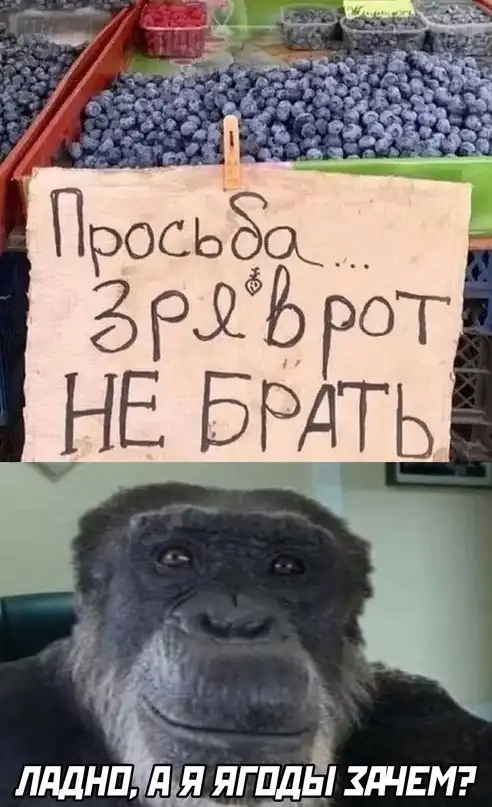 Просьба...
зря в рот
НЕ БРАТЬ
ЛАДНО, А Я ЯГОДЫ ЗАЧЕМ?